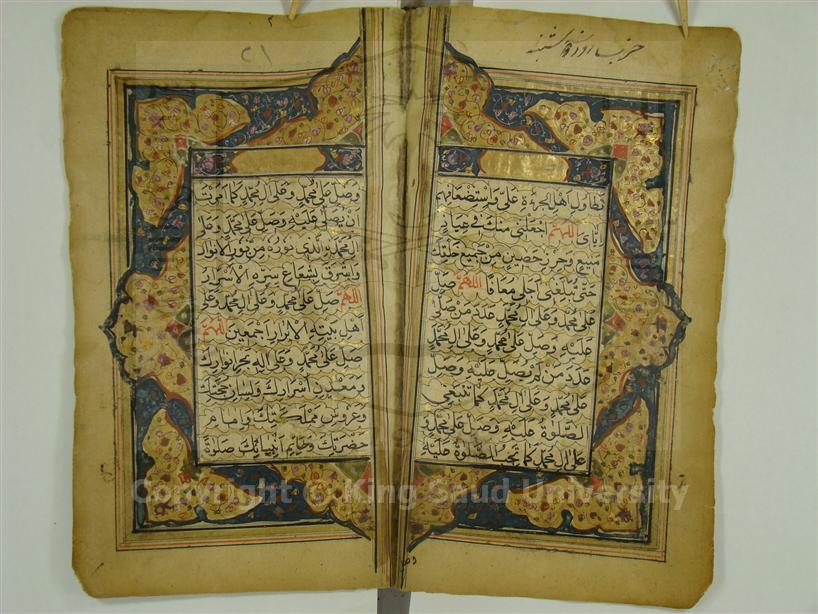 حزب روز دوشنبه
تطاول اهل الجرءة علي و استضعافهم
اياي اللهم اجعلني منك في عياذ
منيع وحرز حصين من جميع خلقك
حتى تبلغني اجلي معافا اللهم صل
على محمد وعلى ال محمد عدد من صلى
عليه وصل على محمد وعلى ال محمد
عدد من لم يصل عليه وصل
على محمد وعلى ال محمد كما تنبغي
الصلوة عليه وصل على محمد و
على ال محمد كما تجب الصلوة عليه
٢١
وصل على محمد وعلى ال محمد كما امرت
ان يصلى عليه وصل على محمد وعلى
ال محمد والذي نوره من نور الانوار
واشرق بشعاع سره الاسرار
اللهم صل على محمد وعلى ال محمد وعلى
اهل بيته الابرار اجمعين اللهم
صل على محمد وعلى اله بحر انوارك
ومعدن اسرارك ولسان حجتك
وعروس مملكتك وامام
حضرتك وخاتم انبيائك صلوة
Copyright © King Saud University